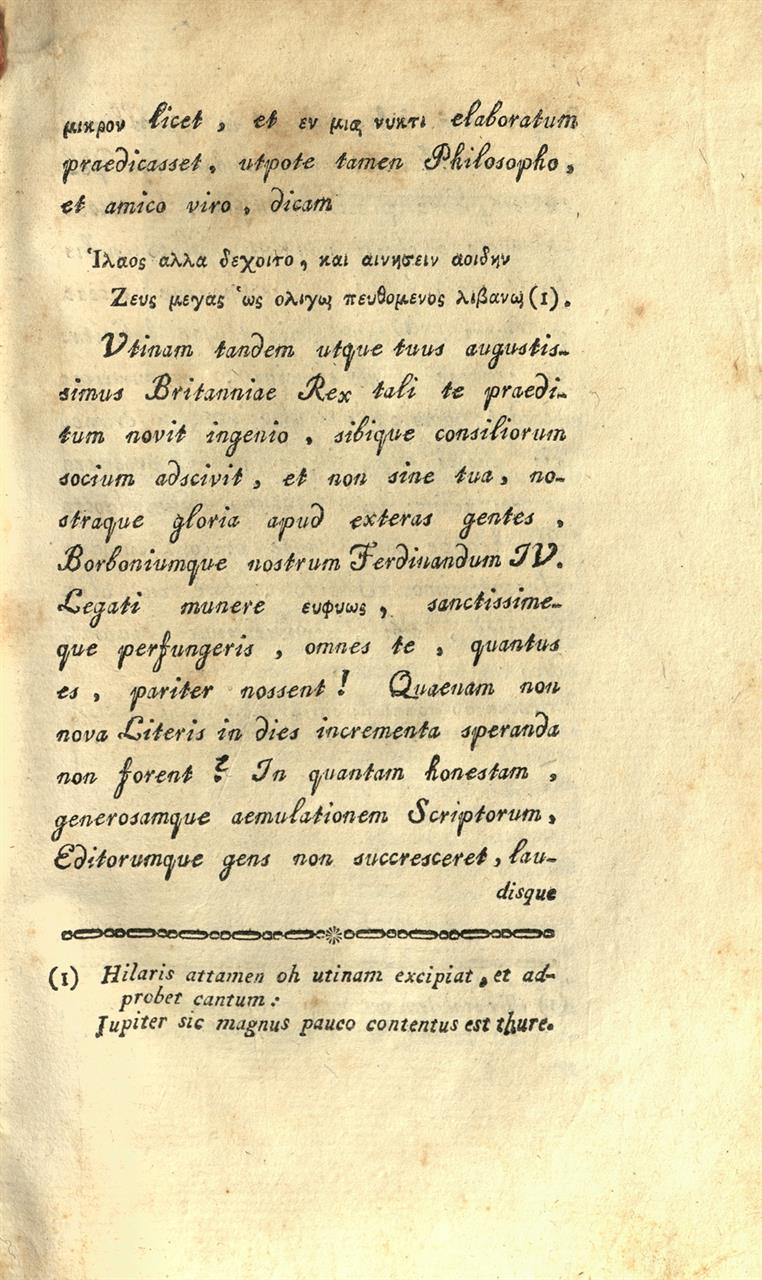 μικρον licet, et εν μιᾳ νυκτι elaboratum
praedicasset, utpote tamen Philosopho,
et amico viro, dicam
Ἱλαος αλλα δεχοιτο, και αινησειν αοιδην
Ζευς μεγας ὡς ολιγῳ πευθομενος λιβανῳ (1).
Vtinam tandem utque tuus augustis-
simus Britanniae Rex tali te praedi-
tum novit ingenio, sibique consiliorum
socium adscivit, et non sine tua, no-
straque gloria apud exteras gentes,
Borboniumque nostrum Ferdinandum IV.
Legati munere ευφυως, sanctissime-
que perfungeris, omnes te, quantus
es, pariter nossent! Quaenam non
nova Literis in dies incrementa speranda
non forent? In quantam honestam,
generosamque aemulationem Scriptorum,
Editorumque gens non succresceret, lau-
disque
(1) Hilaris attamen oh utinam excipiat, et ad-
probet cantum:
Jupiter sic magnus pauco contentus est thure.